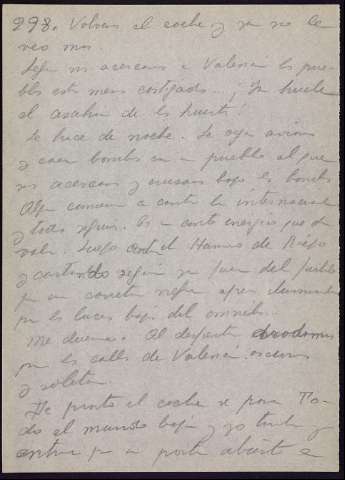 298. Volvemos al coche y ya no le
veo mas.
Según nos acercamos a Valencia los pue-
blos estan menos castigados. ¡Ya huele
el azahar de las huertas!
Se hace de noche. Se oyen aviones
y caen bombas en un pueblo al que
nos acercamos y cruzamos bajo las bombas
Alguien comienza a cantar la internacional
y todos siguen. Es un canto energico que da
valor. Luego cantan el Himno de Riego
y cantando seguimos ya fuera del pueblo
por una carretera negra apenas iluminada
por las luces bajas del omnibus.
Me duermo. Al despertar
por las calles de Valencia oscuras
y solitarias.
De pronto el coche se para. To-
do el mundo baja y yo tambien y
entramos por una puerta abierta a